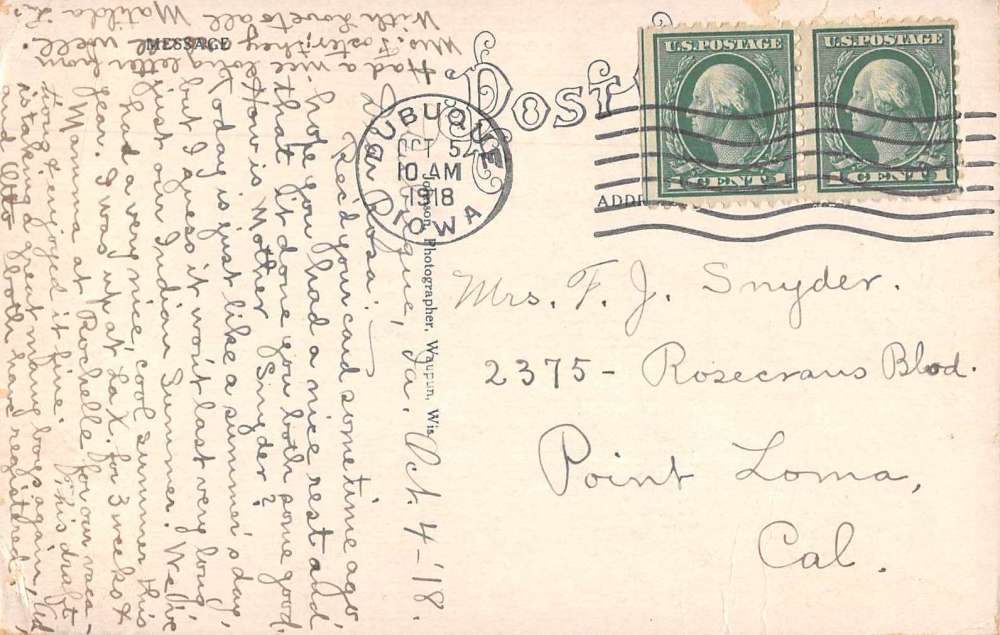 MESSAGE
POST
ADDR
U.S. POSTAGE
1 CENT 1
U.S. POSTAGE
1 CENT 1
DUBUQUE
OCT 5
10 AM
1918
IOWA
Photographer, Waupun, Wis.
Mrs. F. J. Snyder.
2375 - Rosecrans Blvd.
Point Loma,
Cal.
Ia. Oct. 4-'18.
Dear Rosa:
Rec'd your card sometime ago,
hope you had a nice rest and
that it done you both some good.
How is Mother Snyder?
Today is just like a summer's day,
but I guess it won't last very long,
just our Indian Summer. We've
had a very nice, cool summer this
year. I was up at LaX. for 3 weeks &
Mamma at Rochelle for our vaca-
tion & enjoyed it fine. This draft
is taking a great many boys again, Ed
and Otto both have registered.
Had a nice long letter from
Mrs. Foster, they all well.
With Love to all
Matilda L.